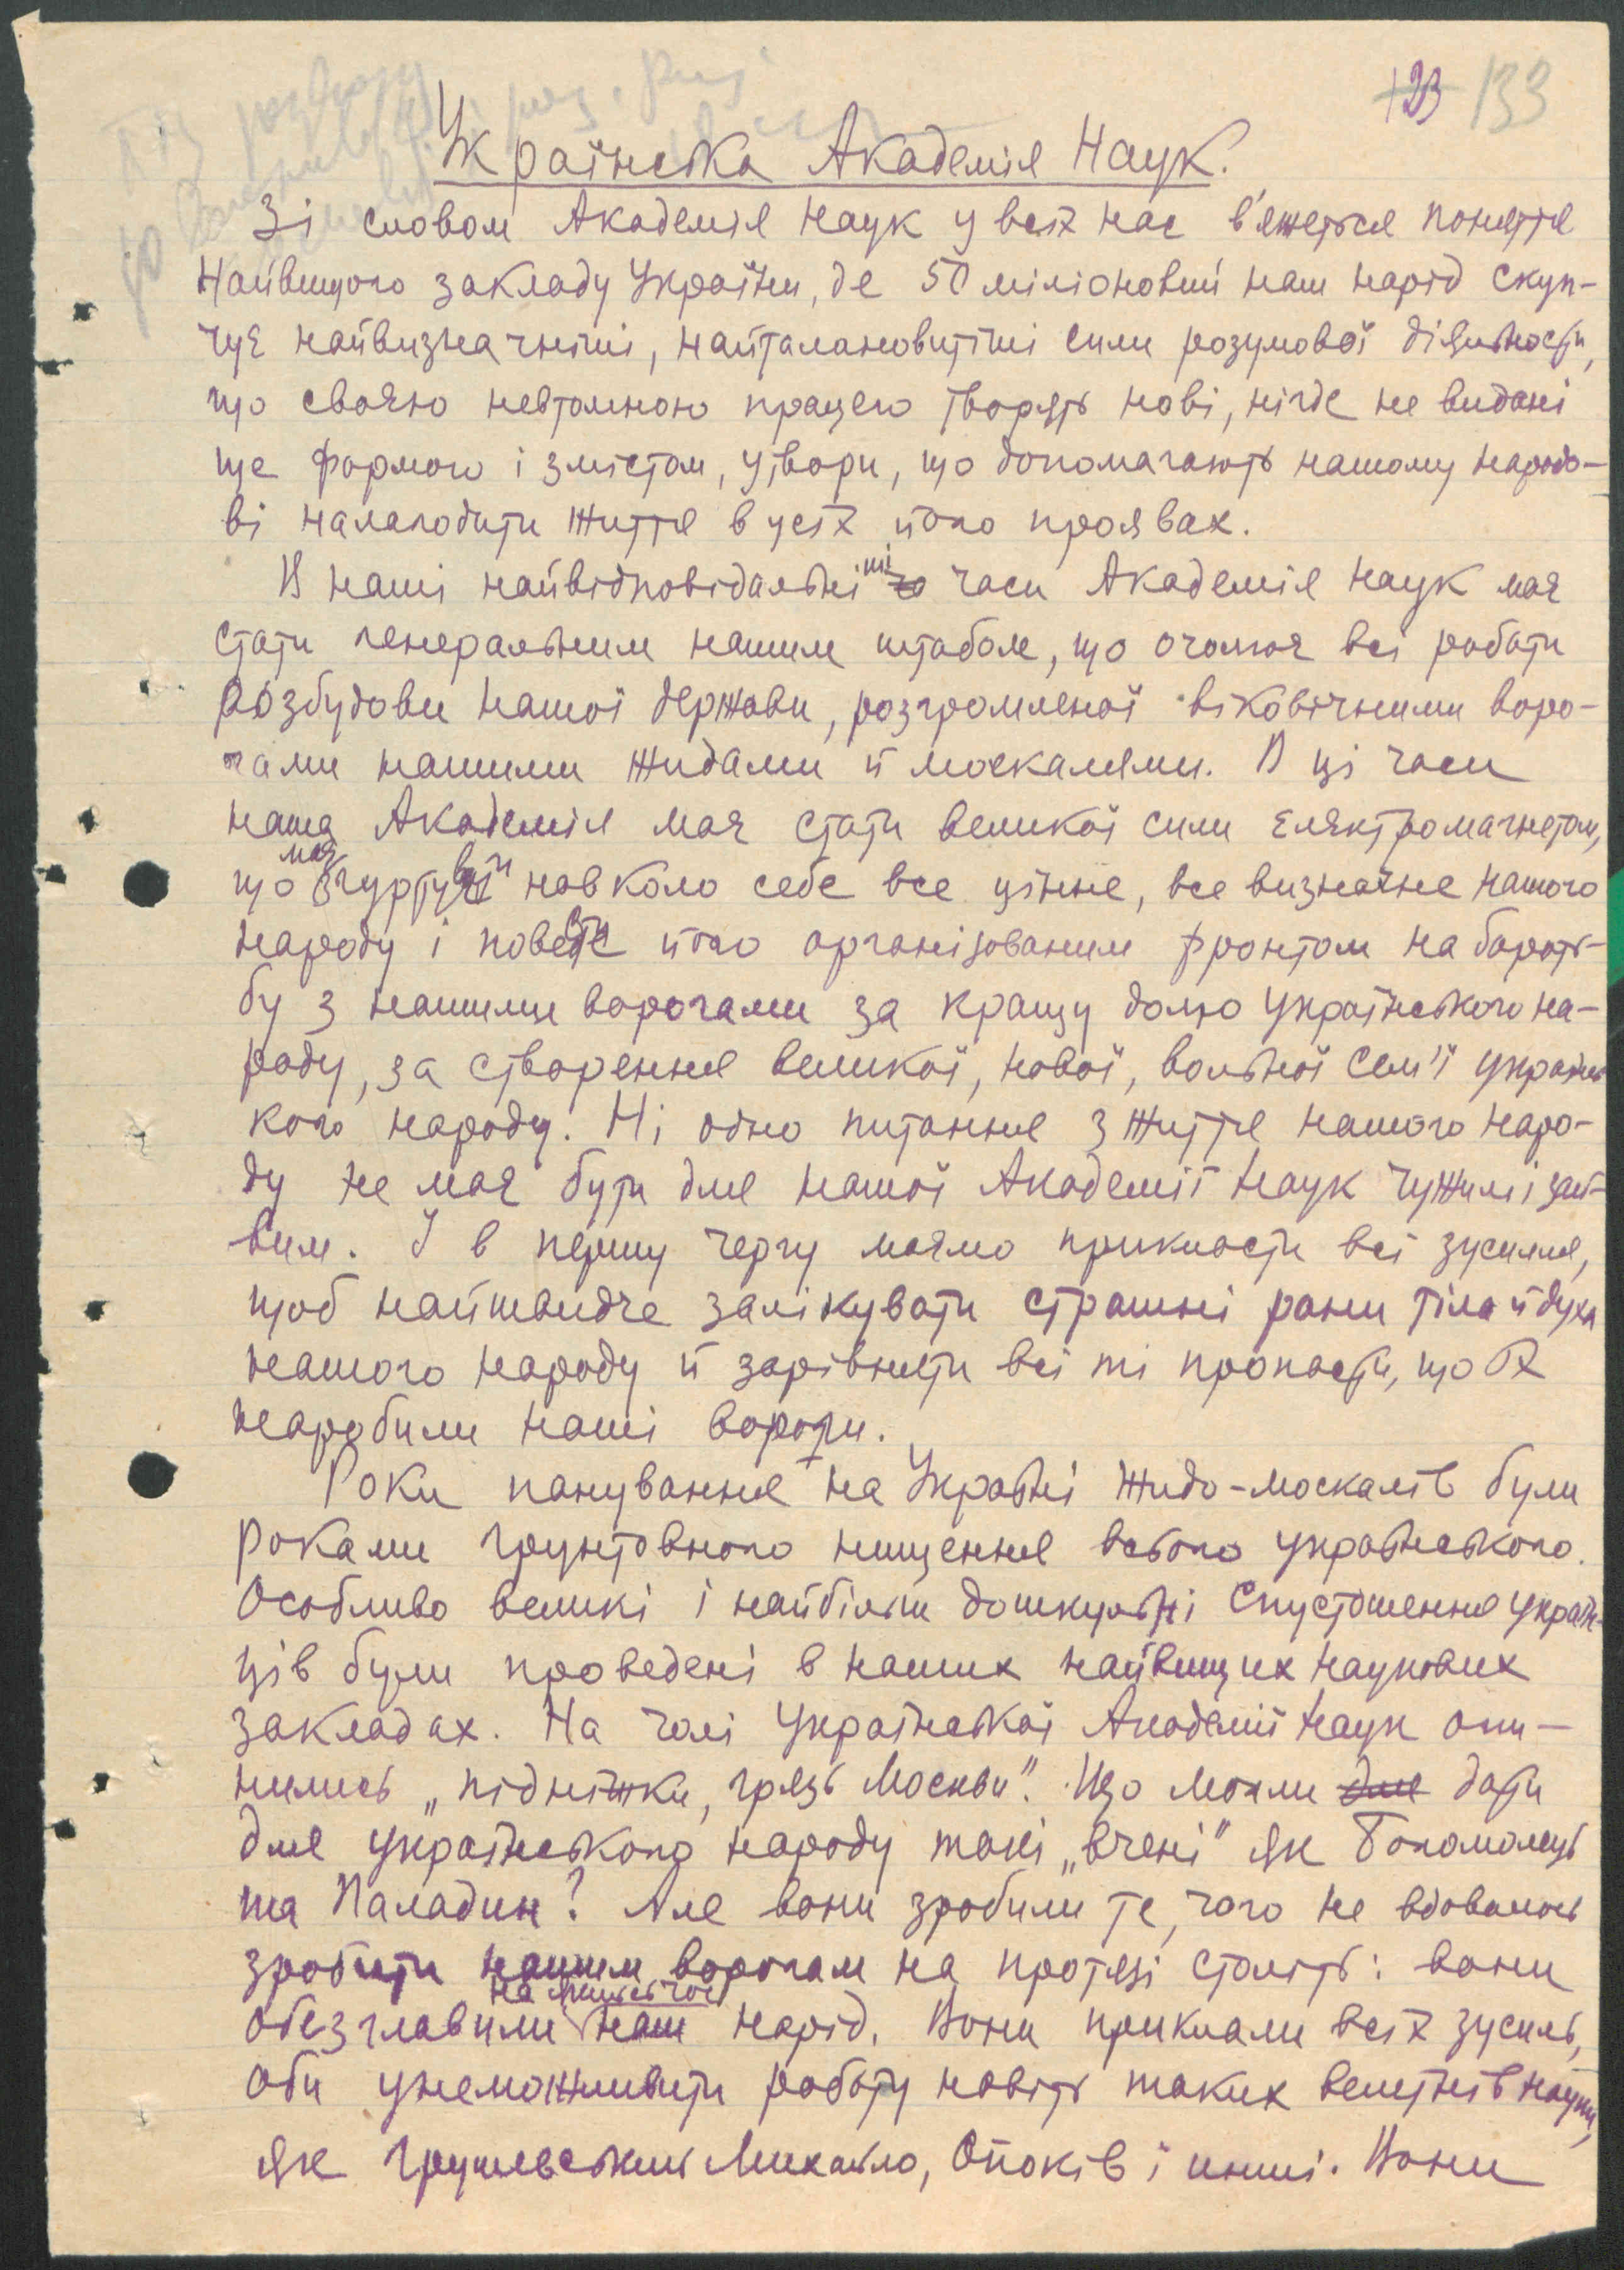 123 133
Українська Академія Наук.
Зі словом Академія Наук у всіх нас в'яжеться поняття
найвищого закладу України, де 50 міліоновий наш нарід скуп-
чує найвизначніші, найталановитіші сили розумової діяльности,
що своєю невтомною працею творять нові, нігде не видані
ще формою і змістом, утвори, що допомагають нашому народо-
ві налагодити життя в усіх його проявах.
В наші найвідповідальніші часи Академія Наук має
стати генеральним нашим штабом, що очолює всі роботи
розбудови нашої держави, розгромленої віковічними воро-
гами нашими жидами й москалями. В ці часи
наша Академія має стати великої сили електромагнетом,
що має згуртувати навколо себе все цінне, все визначне нашого
народу і повести його організованим фронтом на бороть-
бу з нашими ворогами за кращу долю українського на-
роду, за створення великої, нової, вольної сем'ї українсь
кого народу. Ні одно питання з життя нашого наро-
ду не має бути для нашої Академії Наук чужим і зай-
вим. І в першу чергу маємо прикласти всі зусилля,
щоб найшвидче залікувати страшні рани тіла й духа
нашого народу й зарівняти всі ті пропасти, що їх
наробили наші вороги.
Роки панування на Україні жидо-москалів були
роками грунтовного нищення всього українського.
Особливо великі і найбільш дошкульні спустошення україн-
ців були проведені в наших найвищих наукових
закладах. На чолі Української Академії Наук опи-
нились „підніжки, грязь Москви". Що могли для дати
для українського народу такі „вчені" як Богомолець
та Паладин? Але вони зробили те, чого не вдавалось
зробити нашим ворогам на протязі століть: вони
на якийсь час
обезглавили наш нарід. Вони приклали всіх зусиль,
аби унеможливити роботу навіть таких велетнів науки,
як Грушевський Михайло, Опоків і инші. Вони